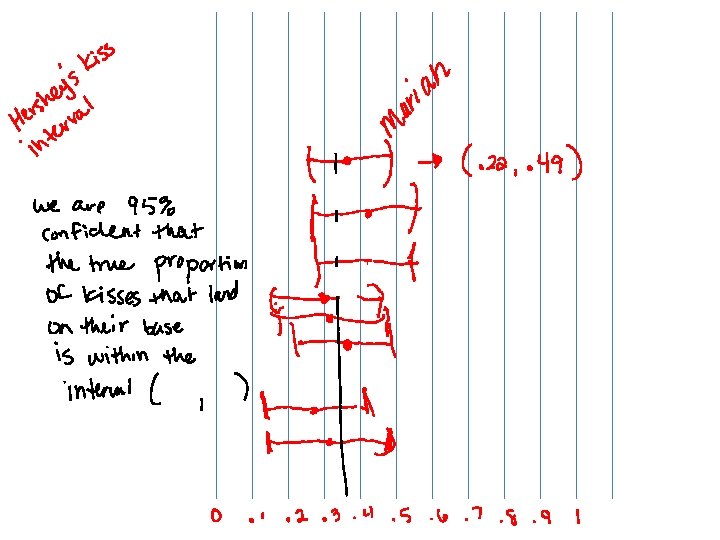 Hershey's kiss
interval
Mariah
(.22, .49)
we are 95%
confident that
the true proportion
of kisses that land
on their base
is within the
interval ( , )
0 .1 .2 .3 .4 .5 .6 .7 .8 .9 1